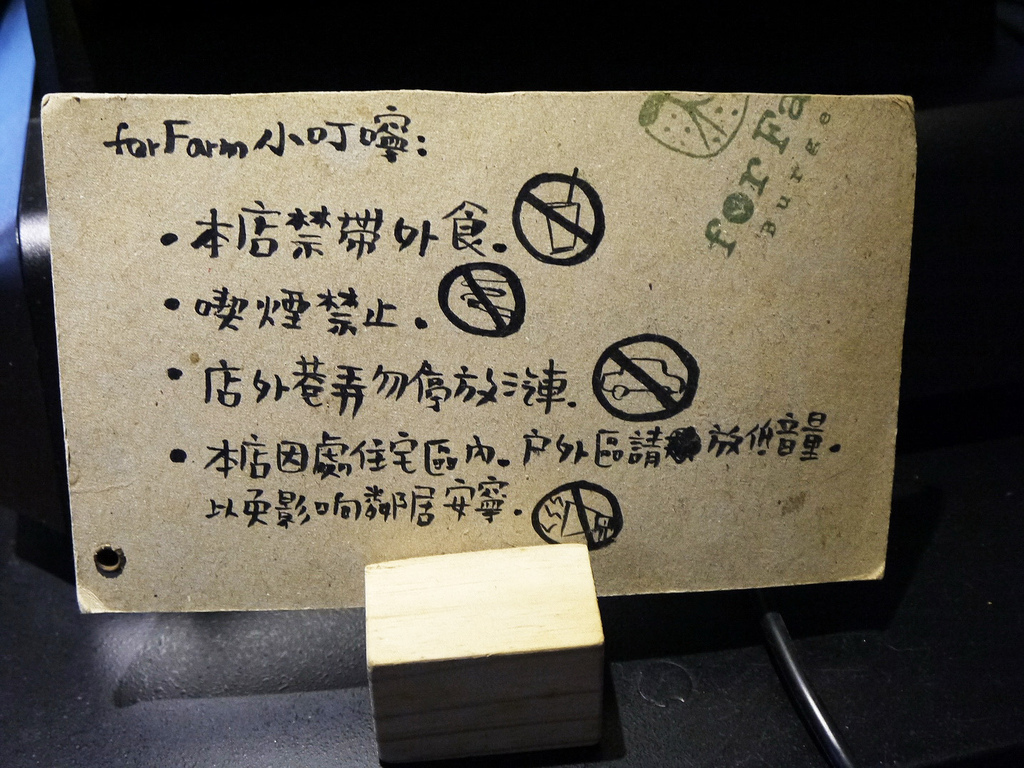 forFarm小叮嚀:
•本店禁帶外食.
•喫煙禁止.
•店外巷弄勿停放汽車.
•本店因處住宅區內.户外區請放低音量.
以免影响鄰居安寧.
forFa
Burge